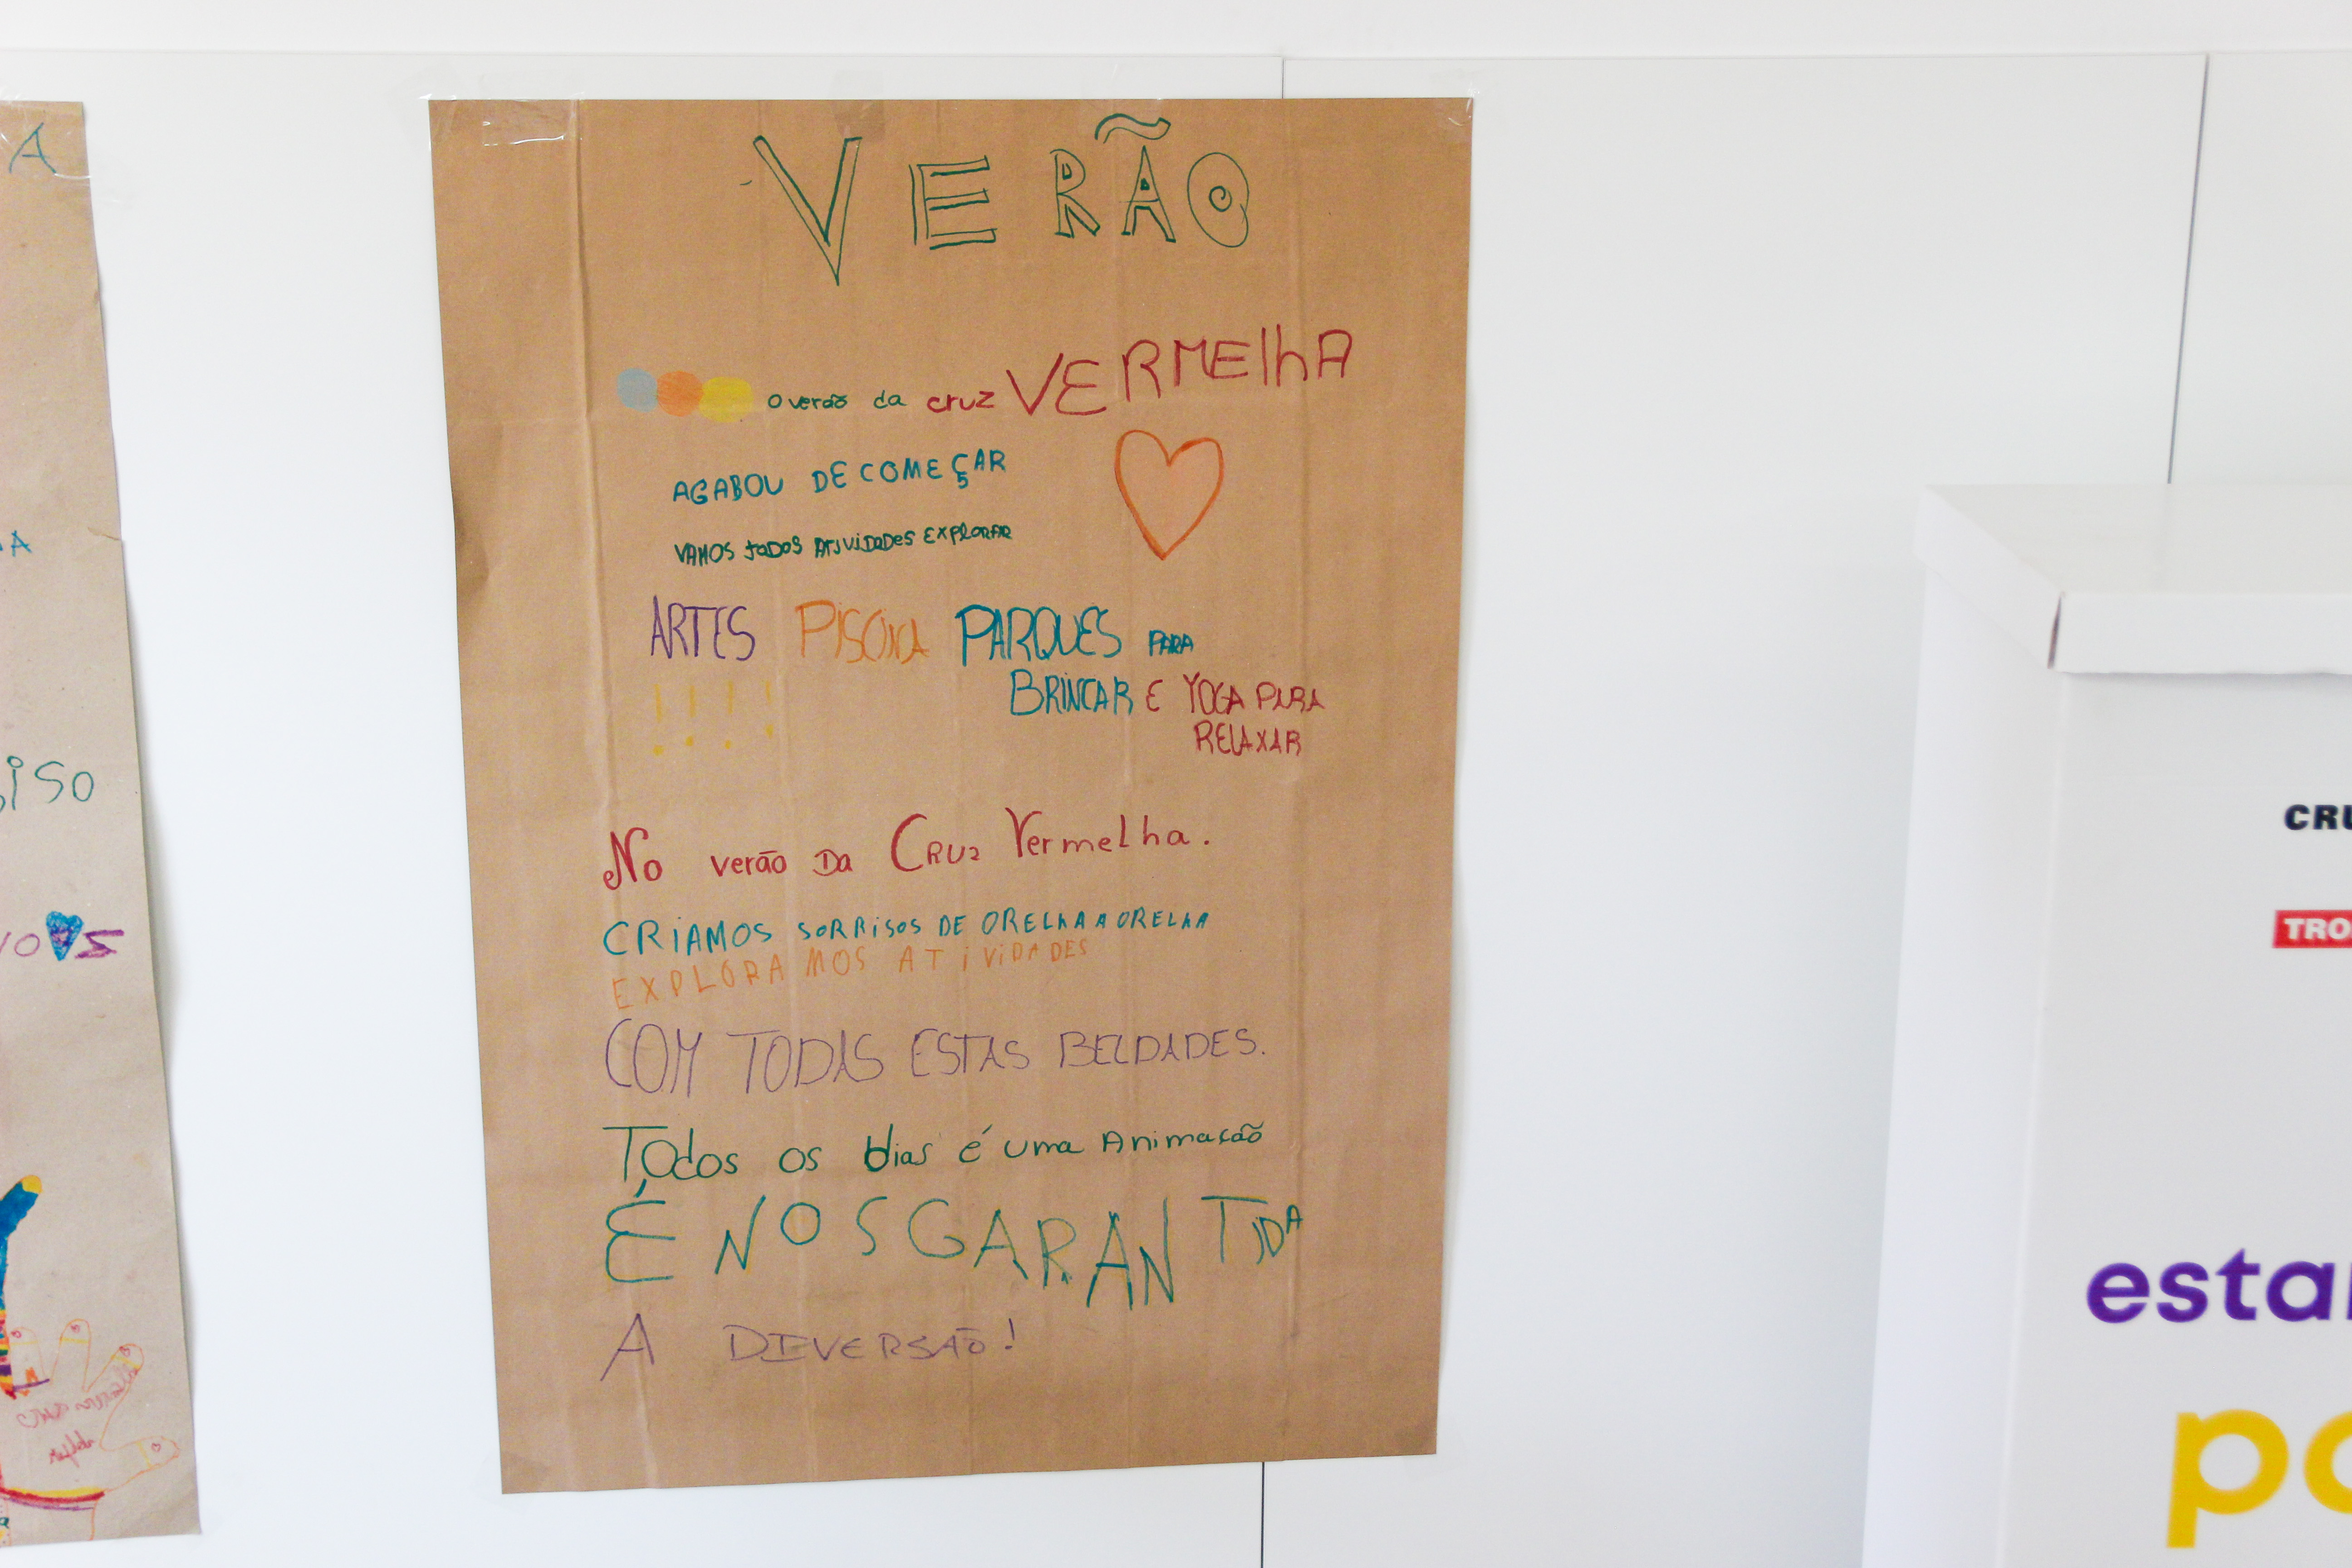 VERÃO
O verão da cruz VERMElhA
AGABOU DE COMEÇAR
VAMOS todos Atividades EXPlORAR
ARTES PISCINA PARQUES PARA
!!!!
BRINCAR E YOGA PARA
RELAXAR
No verão Da CRUZ Vermelha.
CRiAMOS SORRisos DE ORELhA A ORELhA
EXPLORAMOS ATiViDADES
COM TODAS ESTAS BELDADES.
Todos os dias é uma Animação
É NOS GARANTIDA
A DIVERSÃO!
A
A
iso
VO S
CRU
TRO
esta
po